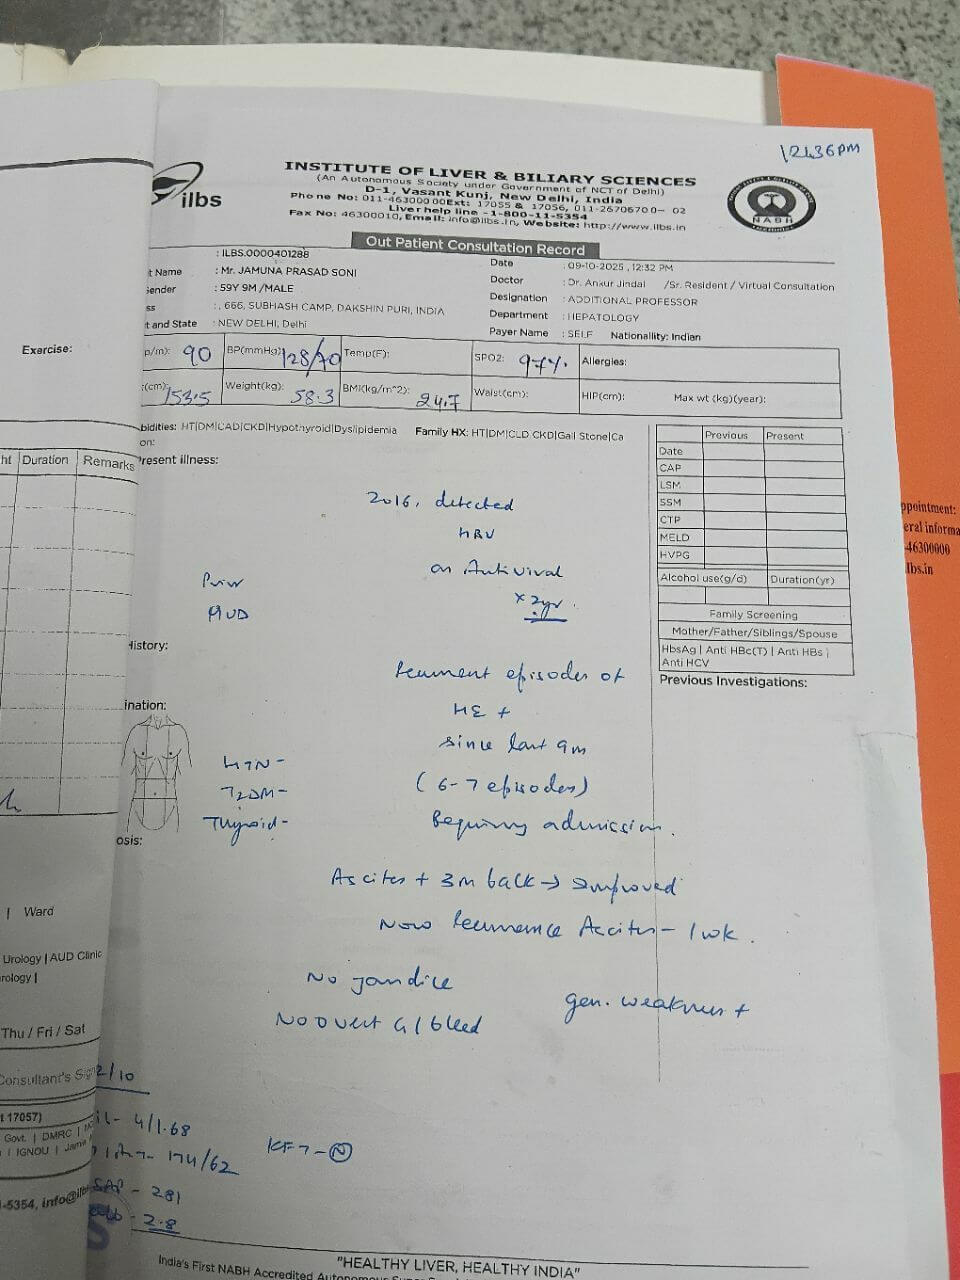 12:36 PM
ilbs
INSTITUTE OF LIVER & BILIARY SCIENCES
(An Autonomous Society under Government of NCT of Delhi)
D-1, Vasant Kunj, New Delhi, India
Phone No: 011-46300000 Ext: 17055 & 17056, 011-26706700- 02
Liver help line -1-800-11-5354
Fax No: 46300010, Email: info@ilbs.in, Website: http://www.ilbs.in
NABH
Out Patient Consultation Record
: ILBS.0000401288
Date : 09-10-2025 , 12:32 PM
t Name : Mr. JAMUNA PRASAD SONI
Doctor : Dr. Ankur Jindal /Sr. Resident / Virtual Consultation
Gender : 59Y 9M /MALE
Designation : ADDITIONAL PROFESSOR
ss : , 666, SUBHASH CAMP, DAKSHIN PURI, INDIA
Department : HEPATOLOGY
t and State : NEW DELHI, Delhi
Payer Name : SELF Nationallity: Indian
p/m): 90 BP(mmHg) 128/70 Temp(F): SPO2: 97%. Allergies:
(cm): 153.5 Weight(kg): 58.3 BMI(kg/m^2): 24.7 Waist(cm): HIP(cm): Max wt (kg)(year):
bidities: HT|DM|CAD|CKD|Hypothyroid|Dyslipidemia Family HX: HT|DM|CLD CKD|Gall Stone|Ca
on:
Present illness:
Previous Present
Date
CAP
LSM
SSM
CTP
MELD
HVPG
Alcohol use(g/d) Duration(yr)
Family Screening
Mother/Father/Siblings/Spouse
HbsAg | Anti HBc(T) | Anti HBs |
Anti HCV
Previous Investigations:
2016, detected
HBV
on Antiviral
x 2yr.
History:
Recurrent episodes of
HE +
since last 9m
(6-7 episodes)
Requiring admission.
ination:
HTN -
T2DM -
Thyroid -
osis:
Ascites + 3m back → Improved
Now recurrence Ascites - 1wk.
No jaundice
gen. weakness +
No overt GI bleed
2/10
4/1.68
174/62
KFT - N
SAP - 281
2.8
"HEALTHY LIVER, HEALTHY INDIA"
India's First NABH Accredited
Exercise:
ht Duration Remarks
| Ward
Urology | AUD Clinic
rology |
Thu / Fri / Sat
Consultant's Sign
t 17057)
Govt. | DMRC |
| IGNOU |
1-5354, info@ilb
ppointment:
eral informa
-46300000
lbs.in